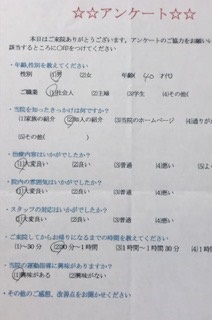 ☆☆アンケート☆☆
本日はご来院ありがとうございます。アンケートのご協力をお願い
該当するところに○印をつけてください
・年齢,性別を教えてください
性別 (1)男 (2)女 年齢( 40 )才代
ご職業 (1)社会人 (2)主婦 (3)学生 (4)その他(
・当院を知ったきっかけは何ですか?
(1)家族の紹介 (2)知人の紹介 (3)当院のホームページ (4)通りが
(5)その他( )
・治療内容はいかがでしたか?
(1)大変良い (2)良い (3)普通 (4)悪い (5)よ
・院内の雰囲気はいかがでしたか?
(1)大変良い (2)良い (3)普通 (4)悪い
・スタッフの対応はいかがでしたか?
(1)大変良い (2)良い (3)普通 (4)悪い
・ご来院してからお帰りになるまでの時間を教えてください
(1)~30分 (2)30分~1時間 (3)1時間~1時間30分 (4)1時
・当院の運動指導に興味がありますか?
(1)興味がある (2)興味がない
・その他のご感想、改善点をお聞かせください